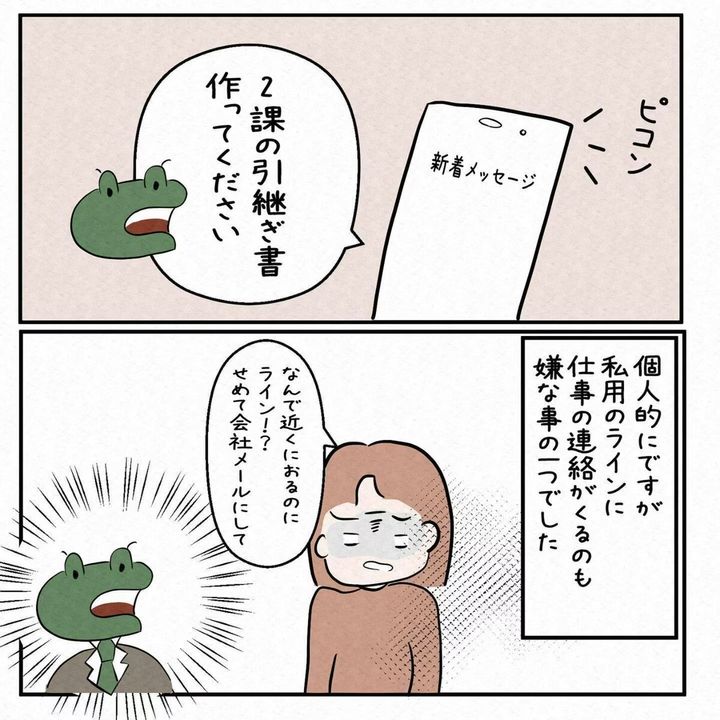 ピコン
新着メッセージ
2課の引継ぎ書
作ってください
個人的にですが
私用のラインに
仕事の連絡がくるのも
嫌な事の一つでした
なんで近くにおるのに
ライン！？
せめて会社メールにして